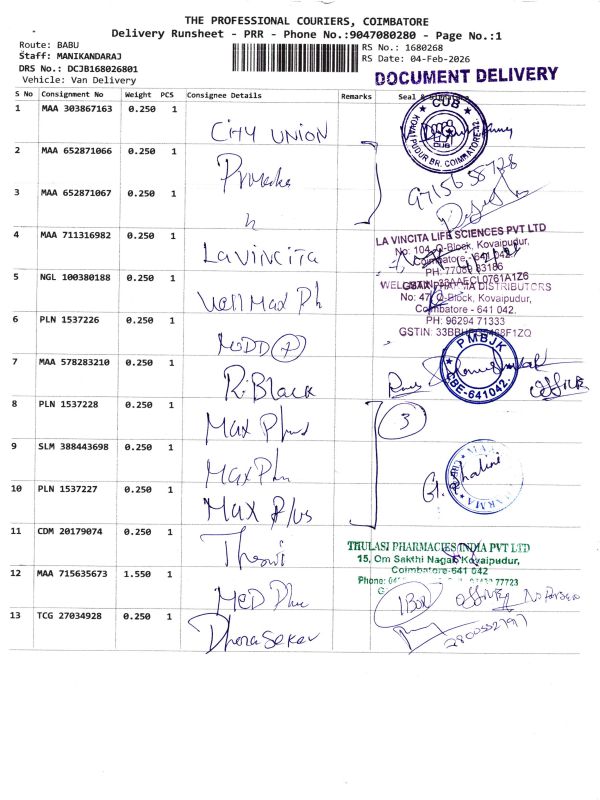 THE PROFESSIONAL COURIERS, COIMBATORE
Delivery Runsheet - PRR - Phone No.:9047080280 - Page No.:1
Route: BABU
Staff: MANIKANDARAJ
DRS No.: DCJB168026801
Vehicle: Van Delivery
RS No.: 1680268
RS Date: 04-Feb-2026
DOCUMENT DELIVERY
S No Consignment No Weight PCS Consignee Details Remarks Seal &
1 MAA 303867163 0.250 1 CITY UNION
CUB
KOVAIPUDUR BR. COIMBATORE-42.
CUB
2 MAA 652871066 0.250 1
9715658728
3 MAA 652871067 0.250 1
4 MAA 711316982 0.250 1 LAVINCITA
LA VINCITA LIFE SCIENCES PVT LTD
No: 104, Q-Block, Kovaipudur,
Coimbatore - 641 042.
5 NGL 100380188 0.250 1 Well Max Ph
No: 47, Q-Block, Kovaipudur,
Coimbatore - 641 042.
PH: 96294 71333
6 PLN 1537226 0.250 1
PMBJK
CBE-641042.
7 MAA 578283210 0.250 1 R. Black
8 PLN 1537228 0.250 1 Max
3
9 SLM 388443698 0.250 1 Max
10 PLN 1537227 0.250 1 Max Plus
11 CDM 20179074 0.250 1
THULASI PHARMACIES INDIA PVT LTD
15, Om Sakthi Nagar, Kovaipudur,
Coimbatore-641 042
12 MAA 715635673 1.550 1 MED
13 TCG 27034928 0.250 1 DhanaSekar